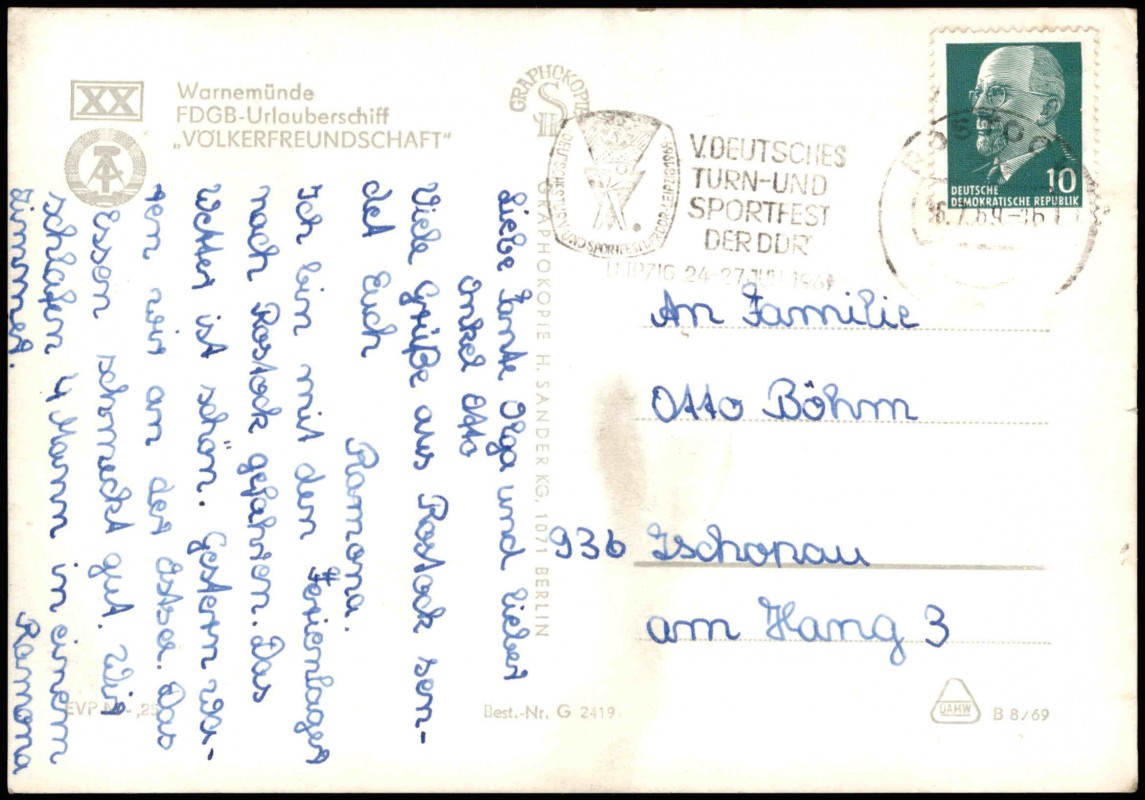 XX
Warnemünde
FDGB-Urlauberschiff
„VÖLKERFREUNDSCHAFT"
GRAPHOKOPIE
H S
GRAPHOKOPIE H. SANDER KG, 1071 BERLIN
V. DEUTSCHES
TURN-UND
SPORTFEST
DER DDR
LEIPZIG 24-27. JULI 1969
DEUTSCHE
DEMOKRATISCHE REPUBLIK
10
ROSTOCK
Liebe Tante Olga und lieber
Onkel Otto
Viele Grüße aus Rostock sen-
det Euch
Ramona.
Ich bin mit den Ferienlager
nach Rostock gefahren. Das
Wetter ist schön. Gestern wa-
ren wir an der Ostsee. Das
Essen schmeckt gut. Wir
schlafen 4 Mann in einem
Zimmer.
Ramona
An Familie
Otto Böhm
936 Zschopau
am Hang 3
EVP M -,25
Best.-Nr. G 2419
DAMW
B 8/69